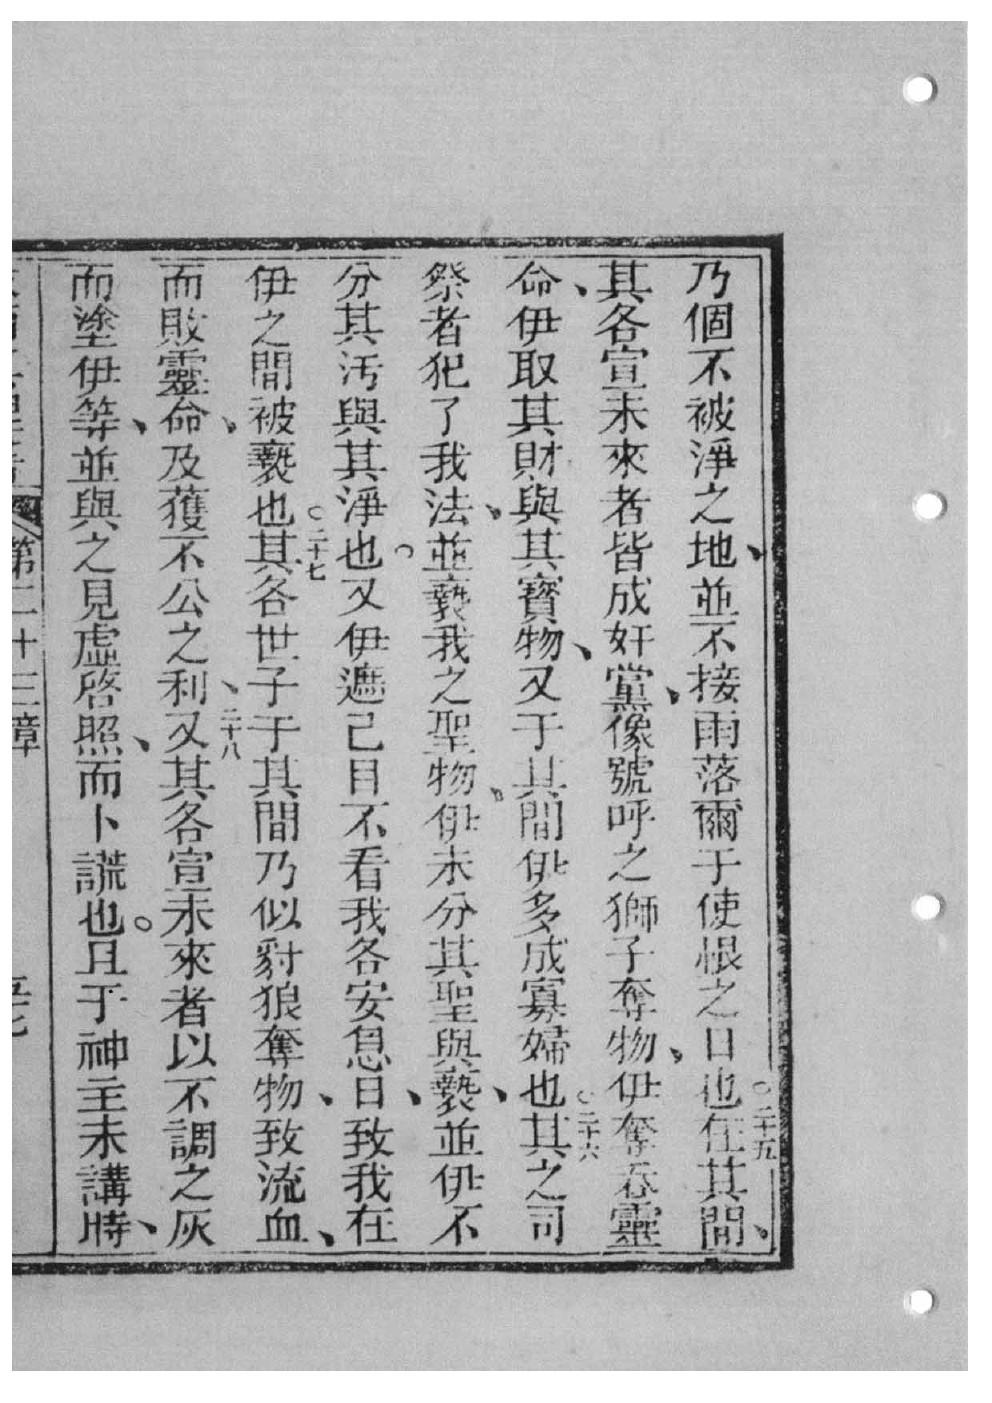 乃個不被淨之地、並不接雨落爾于使恨之日也。二十五在其間、
其各宣未來者皆成奸黨、像號呼之獅子奪物、伊奪吞靈
命、伊取其財與其寶物、又于其間伊多成寡婦也。二十六其之司
祭者犯了我法、並褻我之聖物、伊未分其聖與褻、並伊不
分其汚與其淨也。又伊遮己目不看我各安息日、致我在
伊之間被褻也。二十七其各世子于其間乃似豺狼奪物、致流血、
而敗靈命、及獲不公之利、二十八又其各宣未來者以不調之灰
而塗伊等、並與之見虛啓照、而卜謊也。且于神主未講時、
第二十三章